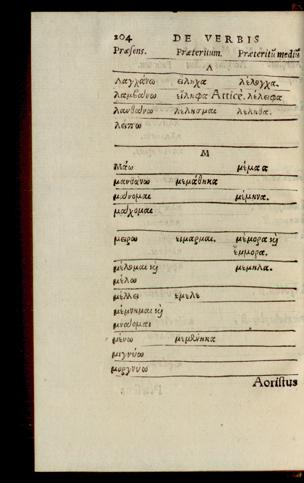 204 DE VERBIS
Præsens. Præteritum. Præteritū mediū
Λ
λαγχάνω εἴληχα λέλογχα.
λαμβάνω εἴληφα Atticè. λέλειφα
λανθάνω λέλησμαι λέληθα.
λείπω
M
Μάω μέμαα
μανθάνω μεμάθηκα
μαίνομαι μέμηνα.
μάχομαι
μείρω εἵμαρμαι. μέμορα
ἔμμορα.
μέλομαι μέμηλα.
μέλω
μέλλει ἔμελε
μέμνημαι
μνάομαι
μένω μεμένηκα
μιγνύω
μοργνύω
Aoristus